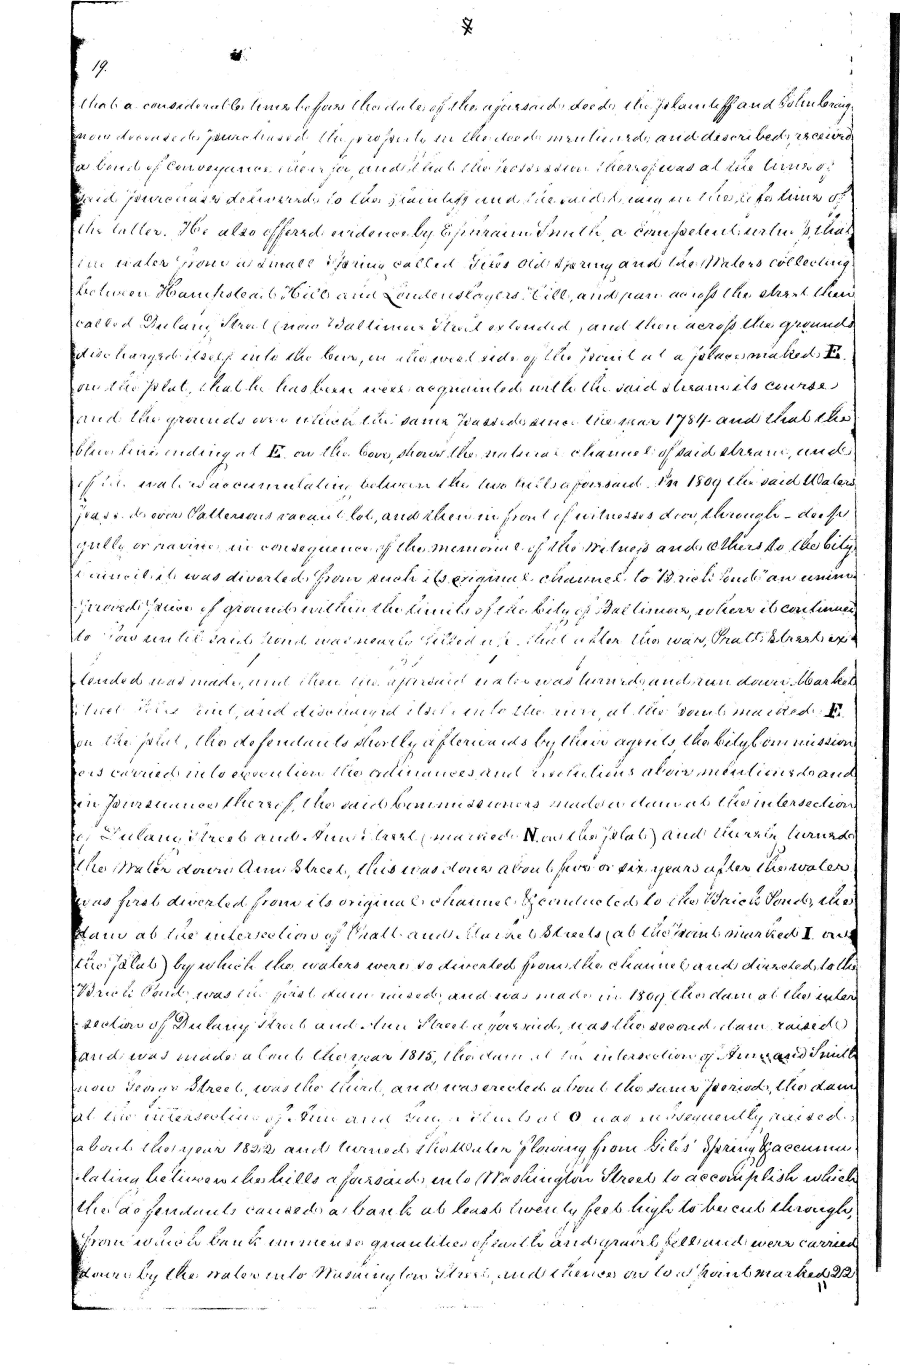 7
19.
that a considerable time before the date of the aforesaid deed, the Plaintiff and John Craig
now deceased, purchased the property in the deed mentioned and described, received
a bond of conveyance therefor, and that the possession thereof was at the time of
said purchase delivered to the plaintiff and the said Craig in the lifetime of
the latter. He also offered evidence by Ephraim Smith, a competent witness, that
the water from a small Spring called Giles Old Spring and the Waters collecting
between Hampstead Hill and Loudenslagers Hill, and ran across the street then
called Dulany Street (now Baltimore Street extended, and then across the grounds
discharged itself into the Cove, on the west side of the point at a place marked E.
on the plat, that he has been well acquainted with the said stream its course
and the grounds over which the same passed since the year 1784 and that the
blue line ending at E. on the Cove, shows the natural channel of said stream, and
of the waters accumulating between the two hills aforesaid. In 1809 the said Waters
passed over Pattersons vacant lot, and then in front of witnesses door, through a deep
gully or ravine, in consequence of the memorial of the Witness and others to the City
Council it was diverted from such its original channel to "Brick Pond" an unim
proved piece of ground within the limits of the City of Baltimore, where it continued
to flow until said pond was nearly filled up. that after the war, Pratt Street ex
tended was made, and then the aforesaid water was turned and run down Market
Street Fells Point, and discharged itself into the river, at the point marked F.
on the plat, the defendants shortly afterwards by their agents, the City Commission
ers carried into execution the ordinances and resolutions above mentioned and
in pursuance thereof, the said Commissioners made a dam at the intersection
of Dulany Street and Ann Street (marked N. on the plat) and thereby turned
the Water down Ann Street, this was done about five or six years after the water
was first diverted from its original channel & conducted to the Brick Pond, the
dam at the intersection of Pratt and Market Streets (at the point marked I on
the plat) by which the waters were so diverted from the channel and directed to the
Brick Pond was the first dam raised, and was made in 1809 the dam at the inter
section of Dulany Street and Ann Street aforesaid, was the second dam raised
and was made about the year 1815, the dam at the intersection of Ann and Smith
now George Street, was the third, and was erected about the same period, the dam
at the intersection of Ann and Streets at O was subsequently raised
about the year 1822 and turned the Water flowing from Giles' Spring & accumu
lating between the hills aforesaid into Washington Street to accomplish which
the defendants caused a bank at least twenty feet high to be cut through,
from which bank immense quantities of earth and gravel fell and were carried
down by the water into Washington Street, and thence on to a point marked 22